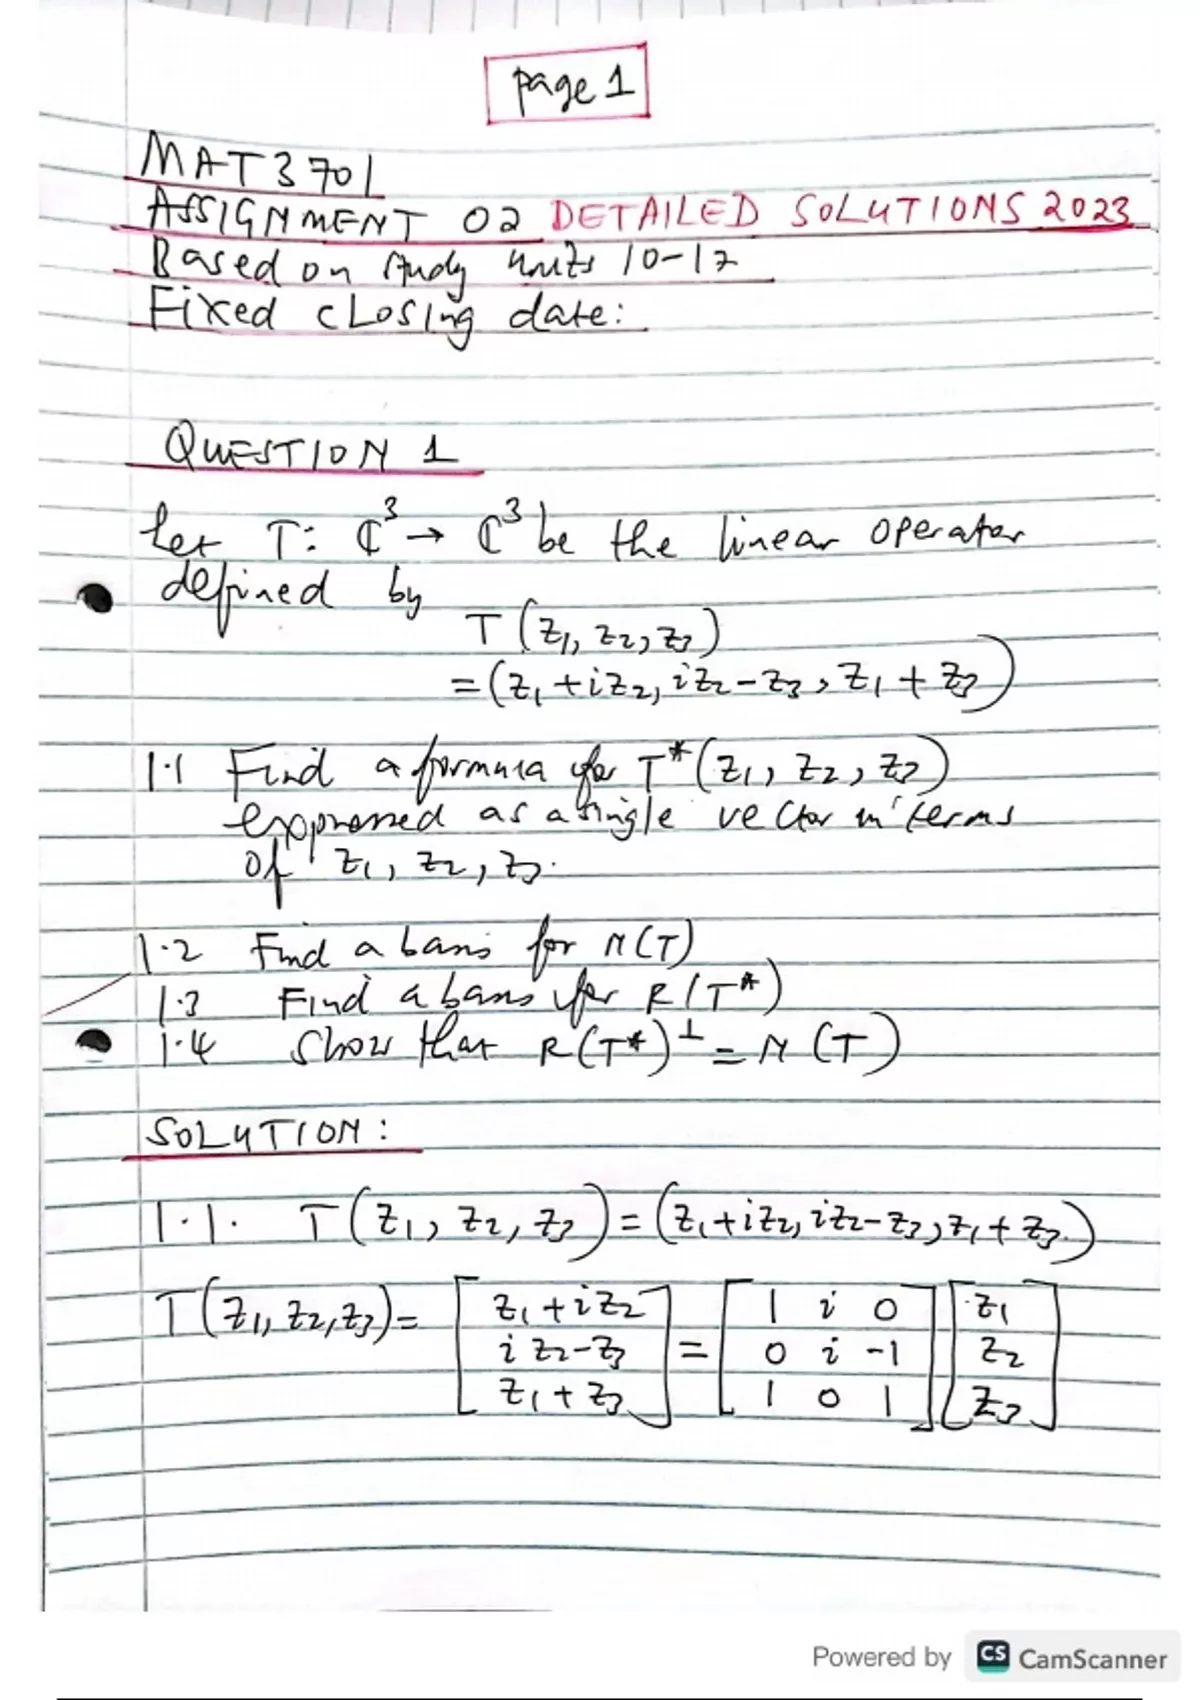 page 1
MAT3701
ASSIGNMENT 02 DETAILED SOLUTIONS 2023
Based on study units 10-17
Fixed cLosing date:
QUESTION 1
Let T: ℂ³ → ℂ³ be the linear operator
defined by
T(z₁, z₂, z₃)
=(z₁+iz₂, iz₂-z₃, z₁+z₃)
1.1 Find a formula for T*(z₁, z₂, z₃)
expressed as a single vector in terms
of z₁, z₂, z₃.
1.2 Find a basis for N(T)
1.3 Find a basis for R(T*)
1.4 Show that R(T*)⊥ = N(T)
SOLUTION:
1.1. T(z₁, z₂, z₃) = (z₁+iz₂, iz₂-z₃, z₁+z₃)
T(z₁, z₂, z₃) = [z₁+iz₂ = [1 i 0] [z₁
iz₂-z₃ = 0 i -1 z₂
z₁+z₃] 1 0 1] z₃]
Powered by CS CamScanner